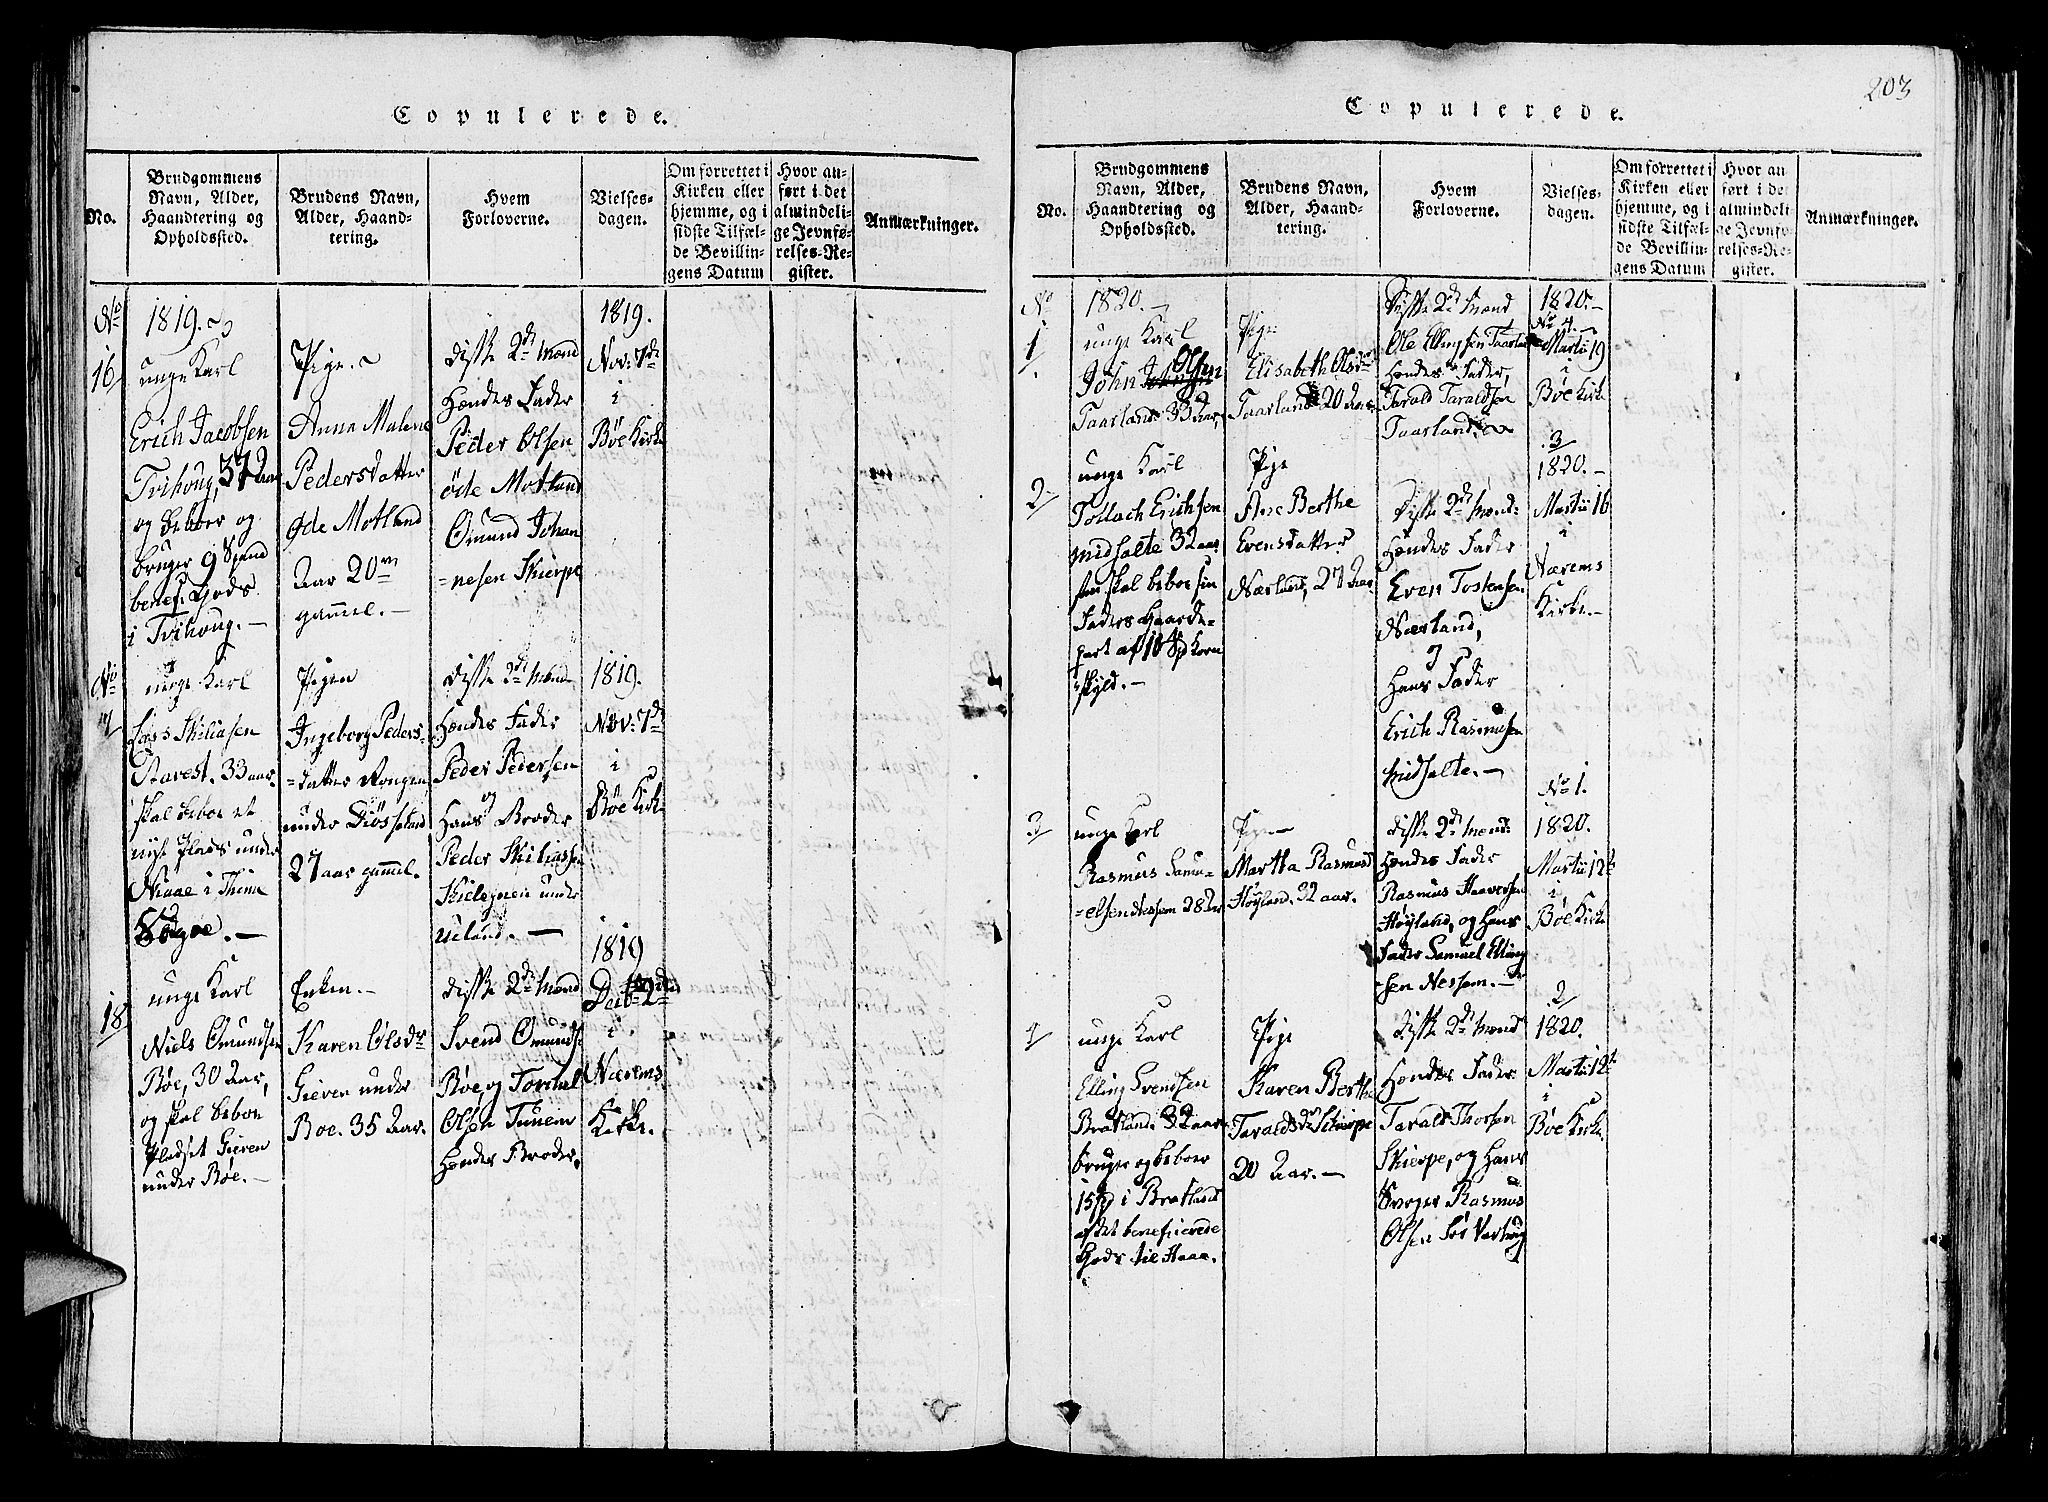 Copulerede.
No.
Brudgommens
Navn, Alder,
Haandtering og
Opholdssted.
Brudens Navn,
Alder, Haand-
tering.
Hvem
Forloverne.
Vielses-
dagen.
Om forrettet i
Kirken eller
hjemme, og i
sidste Tilfæl-
de Bevillin-
gens Datum
Hvor an-
ført i det
almindeli-
ge Jevnfø-
relses-Re-
gister.
Anmærkninger.
No
16
1819.
unge Karl
Erich Jacobsen
Tvihoug, 37 Aar
og beboer og
bruger 9 Spand
benef. Gods
i Tvihoug. –
Pige.
Anna Malene
Pedersdatter
øde Motland
Aar 20
gammel. –
disse 2de Mænd
Hendes Fader
Peder Olsen
øde Motland
Omund Johan
=nesen Skierpe
1819.
Nov: 7de
i
Bøe Kirke
No
unge Karl
Lars Skiliasen
Aarest. 33 aar.
skal beboe et
nyt Plads under
Niaae i Thime
Sogne. –
Pigen
Ingeborg Peders=
=datter Rongen
under
27 aar gammel.
disse 2de Mænd
Hendes Fader
Peder Pedersen
og
Hans Broder
Peder Skiliassen
under
1819.
Nov: 7de
i
Bøe Kirke
18
unge Karl
Niels Omundsen
Bøe, 30 Aar,
og skal beboe
Pladset Gieren
under Bøe. –
Enken. –
Karen Olsdr
Gieren under
Boe. 35 Aar.
disse 2de Mænd
Svend Omunds:
Bøe, og
Olsen Tunem
Hendes Broder,
1819
i
Nærems
Kirke.
203
Copulerede.
No.
Brudgommens
Navn, Alder,
Haandtering og
Opholdssted.
Brudens Navn,
Alder, Haand-
tering.
Hvem
Forloverne.
Vielses-
dagen.
Om forrettet i
Kirken eller
hjemme, og i
sidste Tilfæl-
de Bevillin-
gens Datum
Hvor an-
ført i det
almindeli-
ge Jevnfø-
relses-Re-
gister.
Anmærkninger.
No
1
1820. –
unge Karl
John Olsen
Taarland.
Pige
Elisabeth Olsdr
Taarland 20 Aar.
disse 2de Mænd
Ole Ellingsen Taarland
Hendes Fader,
Tarald Taraldsen
Taarland.
1820. –
No 4.
Martii 19
i
Bøe Kirke
2
unge Karl
Tollach Erichsen
Midfalte 32 aar
skal beboe sin
Faders Gaarde-
part af 10 Spd Korn
skyld. –
Pige
Ane Berthe
Evensdatter
Nærland, 27 Aar
disse 2de Mænd:
Hendes Fader
Even Tostensen
Nærland,
Hans Fader
Erich Rasmussen
Midfalte. –
3
1820. –
Martii 16
i
Nærems
Kirke –
3
unge Karl
Rasmus Samu=
=elsen Nessem 28 Aar
Pige –
Martha Rasmusd
Høyland. 32 aar.
disse 2de Mænd:
Hendes Fader
Rasmus Haaversen
Høyland, og Hans
Fader Samuel Elling
sen Nessem. –
No 1.
1820.
Martii 12te
i
Bøe Kirke
unge Karl
Elling Svendsen
Bratland. 32 aar
bruger og beboer
15 i Bratland
af det beneficerede
Gods til Haae.
Pige
Karen Berthe
Taraldsdr Skierpe
20 Aar. –
disse 2de Mænd
Hendes Fader
Tarald Thorsen
Skierpe, og Hans
Svoger Rasmus
Olsen
2
1820.
Martii 12te
i
Bøe Kirke